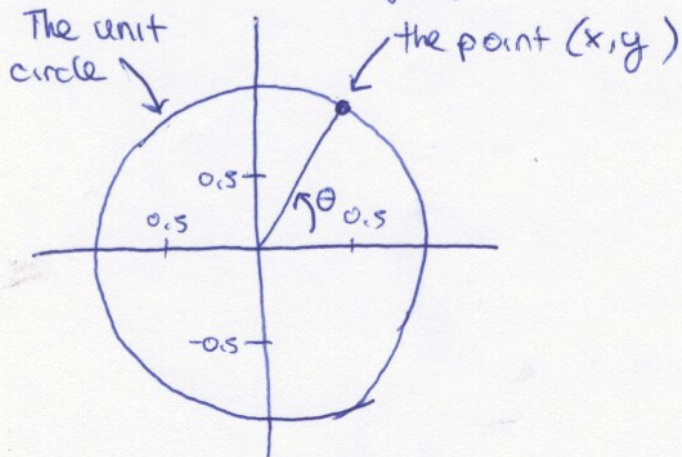 The unit
circle
the point (x,y)
0.5
θ
0.5
0.5
-0.5